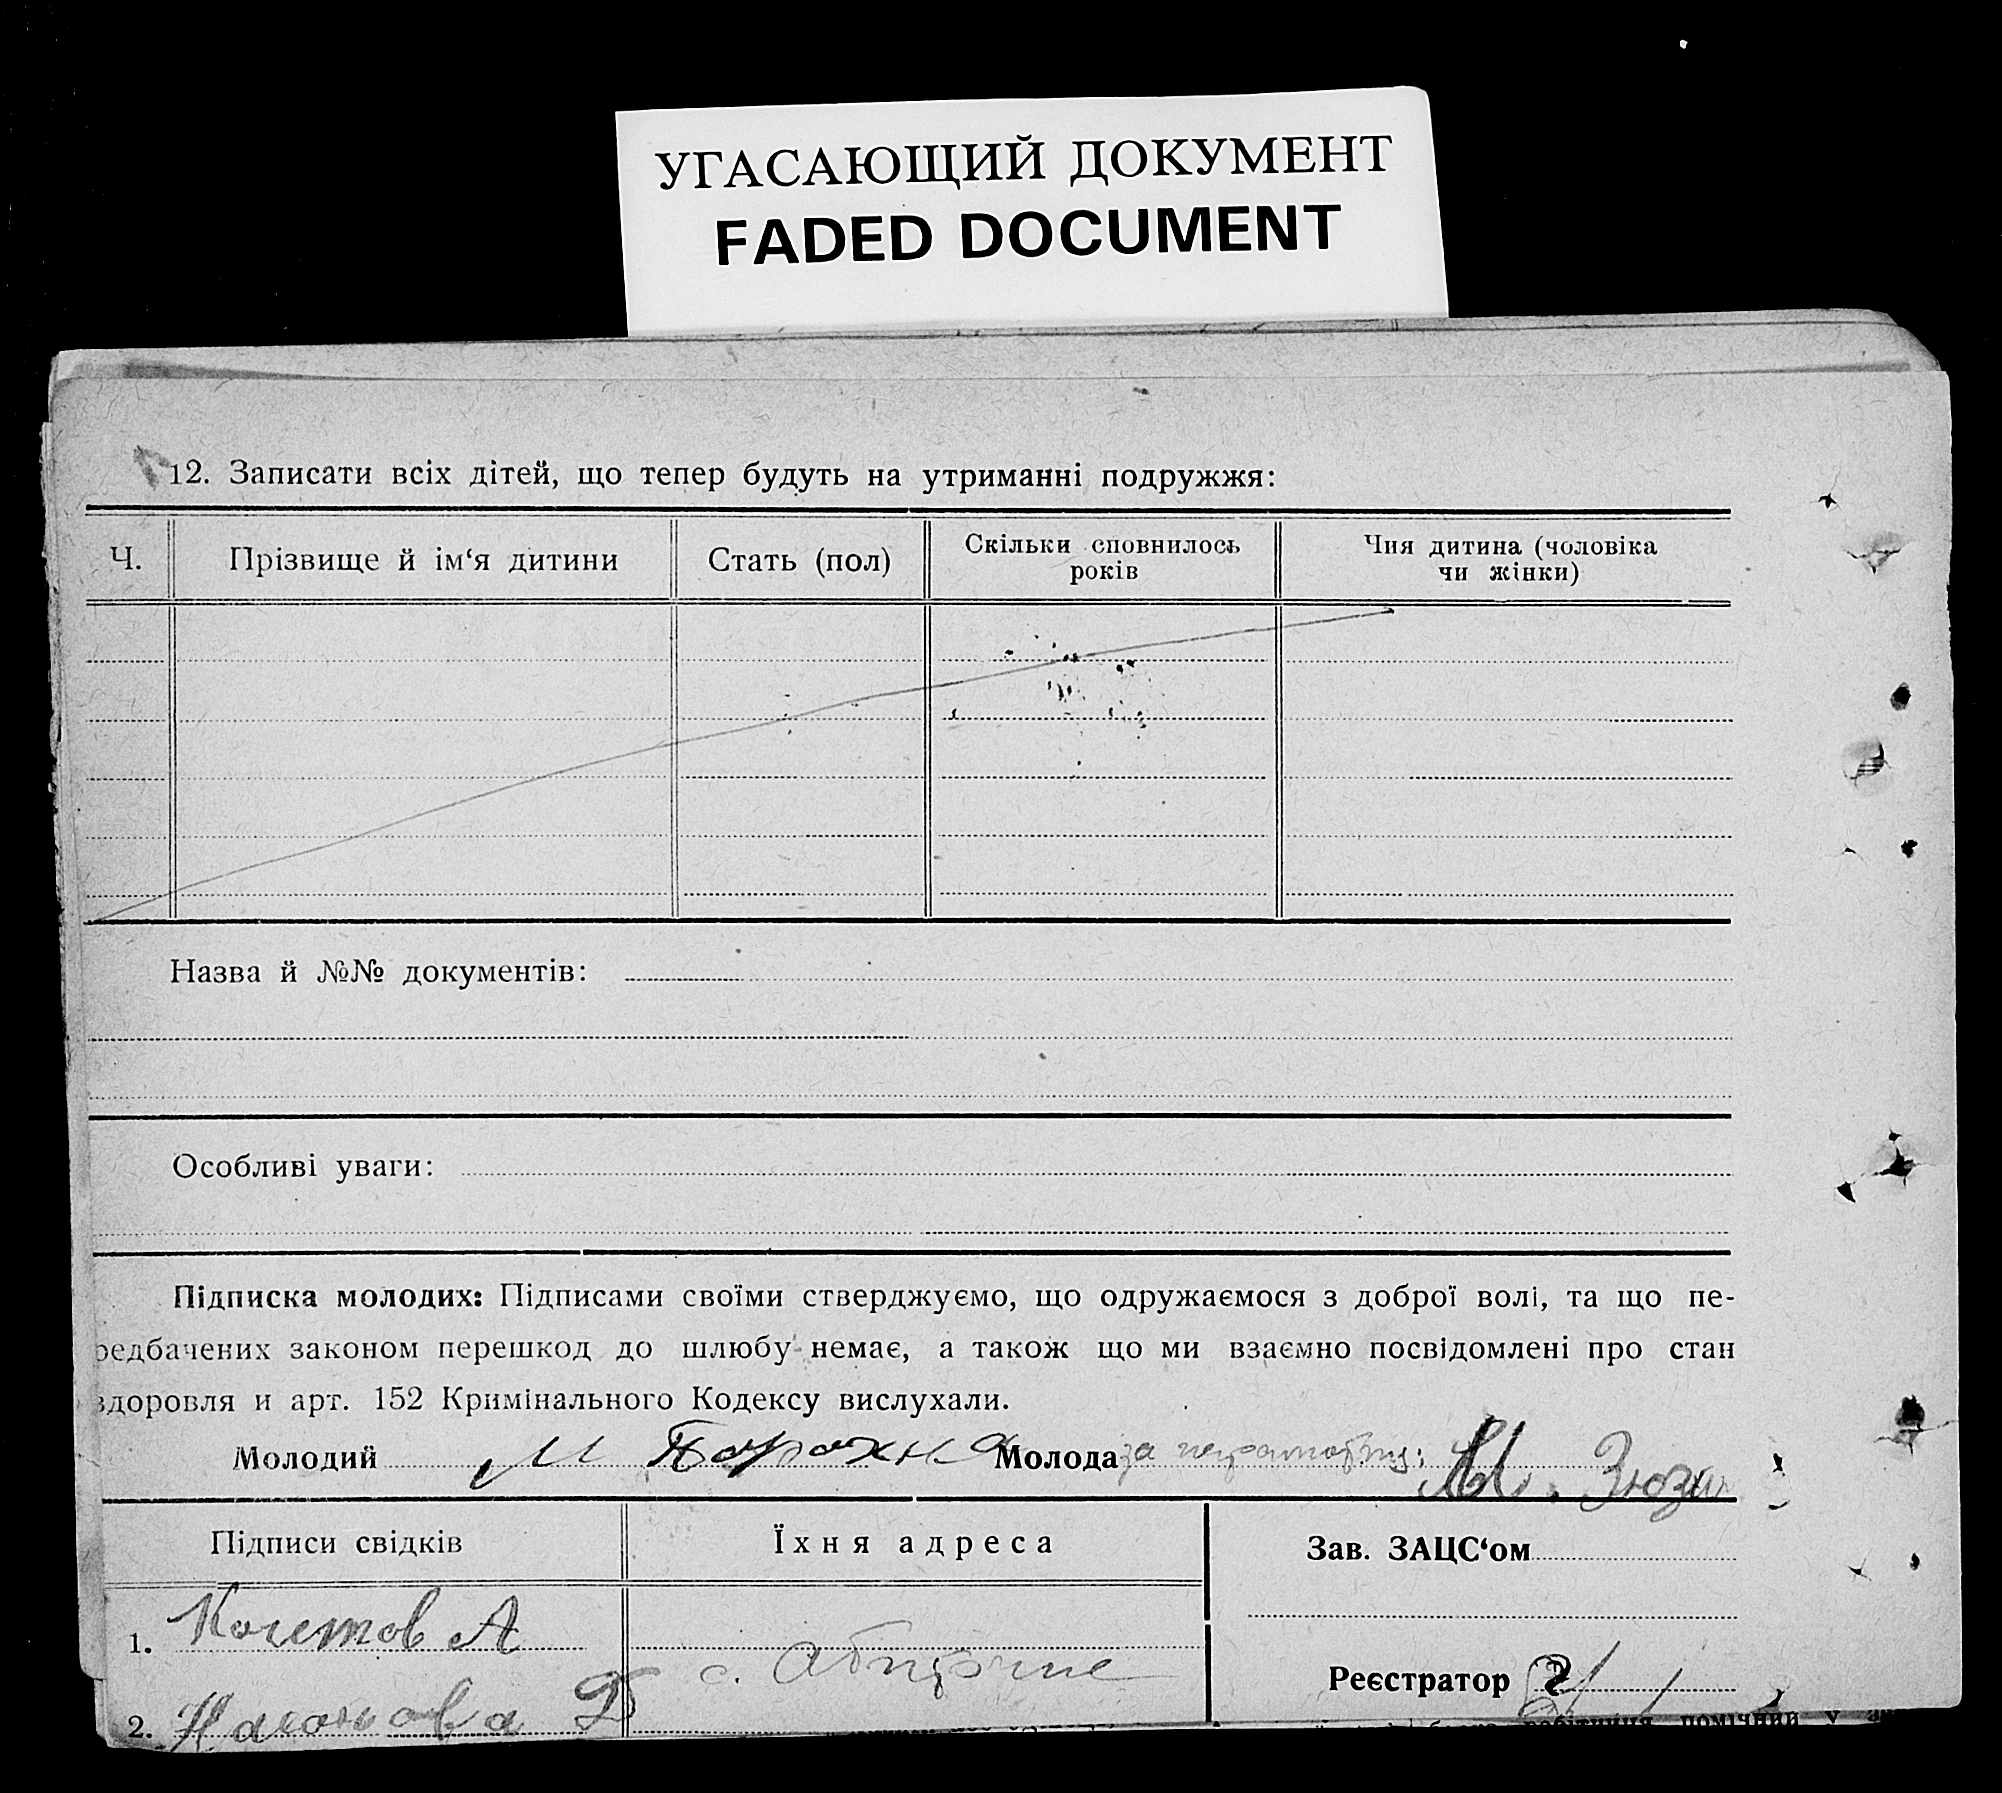 УГАСАЮЩИЙ ДОКУМЕНТ
FADED DOCUMENT
12. Записати всіх дітей, що тепер будуть на утриманні подружжя:
Ч. Прізвище й ім‘я дитини Стать (пол) Скільки сповнилось років Чия дитина (чоловіка чи жінки)
Назва й №№ документів:
Особливі уваги:
Підписка молодих: Підписами своїми стверджуємо, що одружаємося з доброї волі, та що пе-
редбачених законом перешкод до шлюбу немає, а також що ми взаємно посвідомлені про стан
здоровля и арт. 152 Кримінального Кодексу вислухали.
Молодий И Порохня Молода за И. Зюза
Підписи свідків Їхня адреса Зав. ЗАЦС‘ом
1. Кочетов А
с.
Реєстратор
2.
помічний у